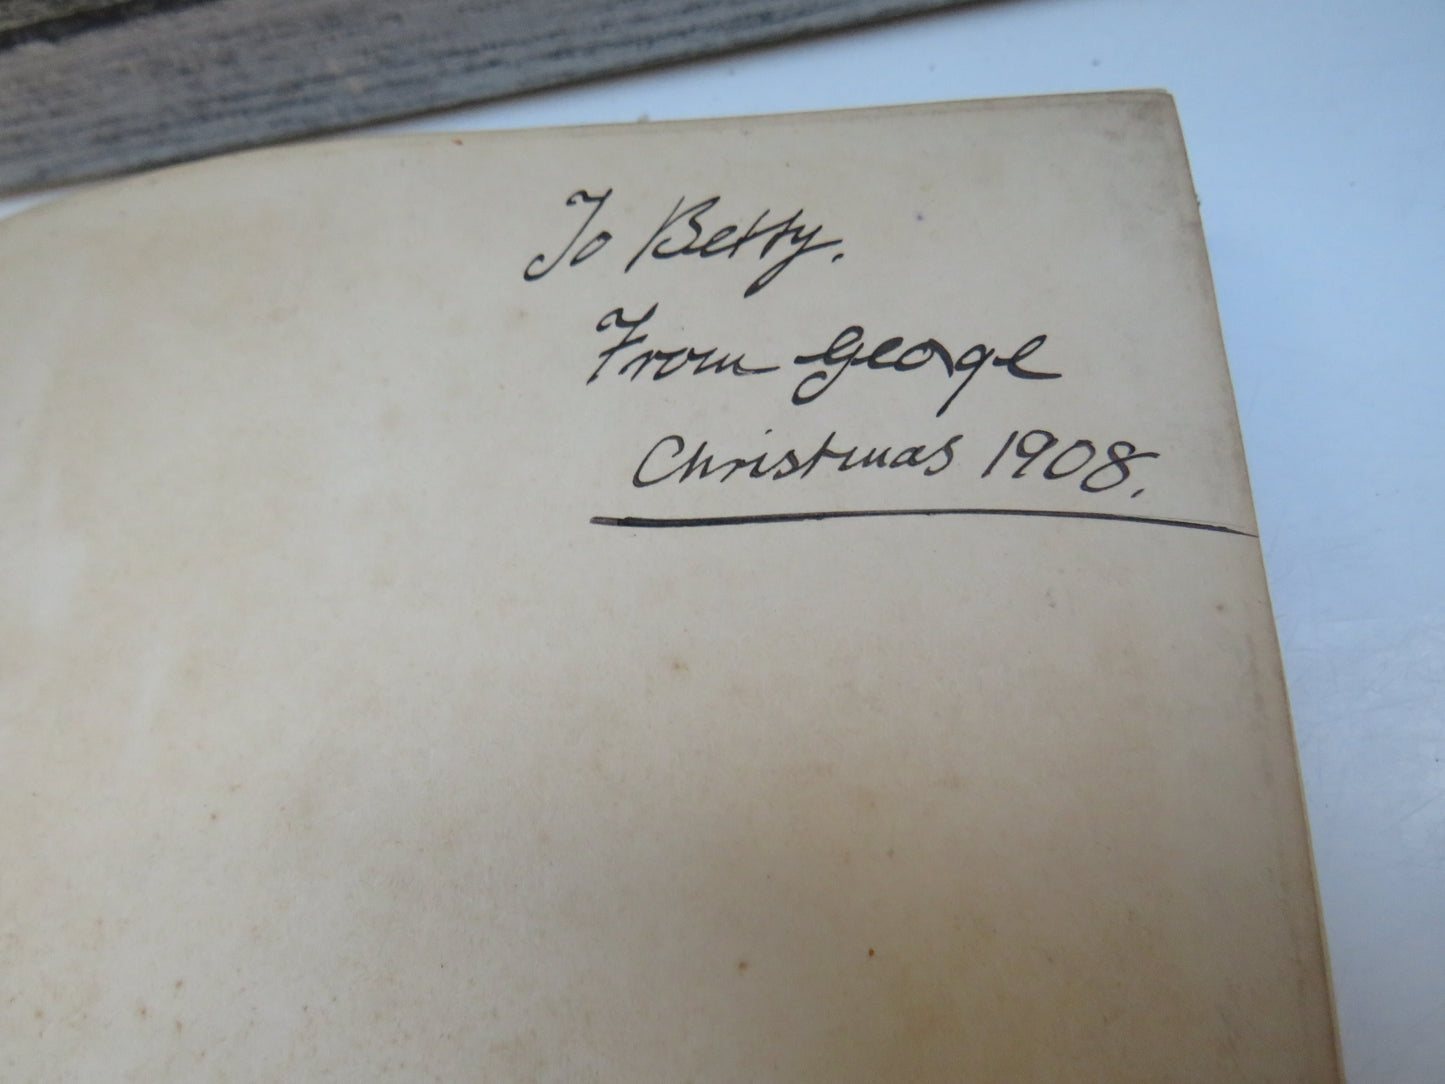 To Betty.
From George
Christmas 1908.